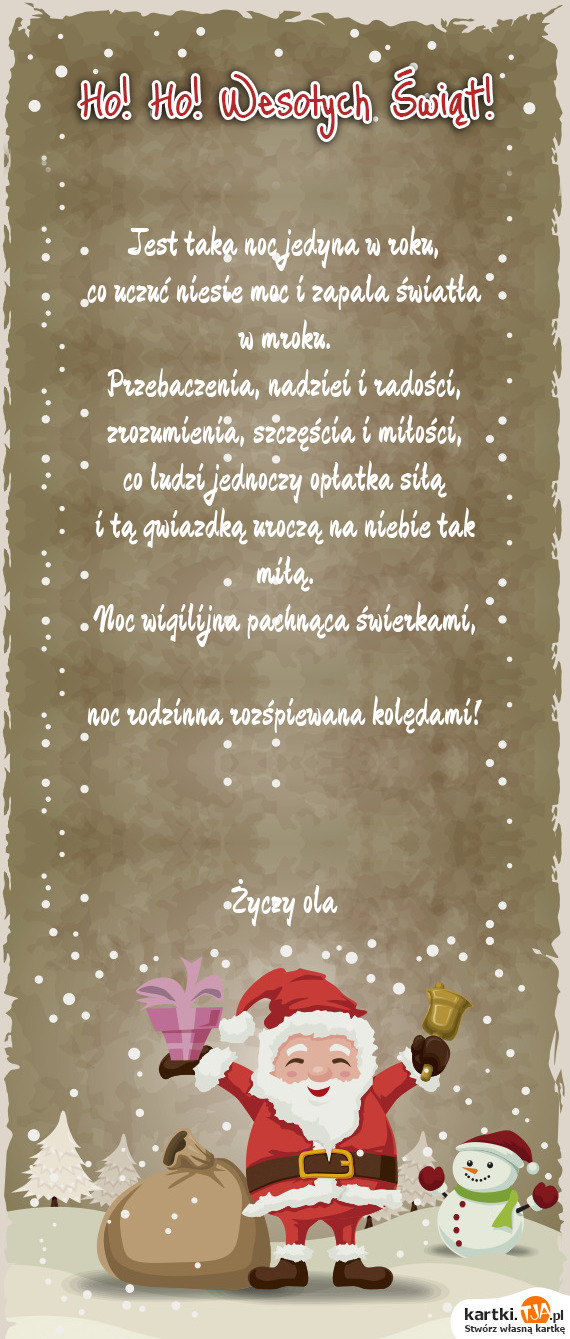 Ho! Ho! Wesołych Świąt!
Jest taka noc jedyna w roku,
co uczuć niesie moc i zapala światła
w mroku.
Przebaczenia, nadziei i radości,
zrozumienia, szczęścia i miłości,
co ludzi jednoczy opłatka siłą
i tą gwiazdką uroczą na niebie tak
miłą.
Noc wigilijna pachnąca świerkami,
noc rodzinna rozśpiewana kolędami!
Życzy ola
kartki.TJA.pl
Stwórz własną kartkę